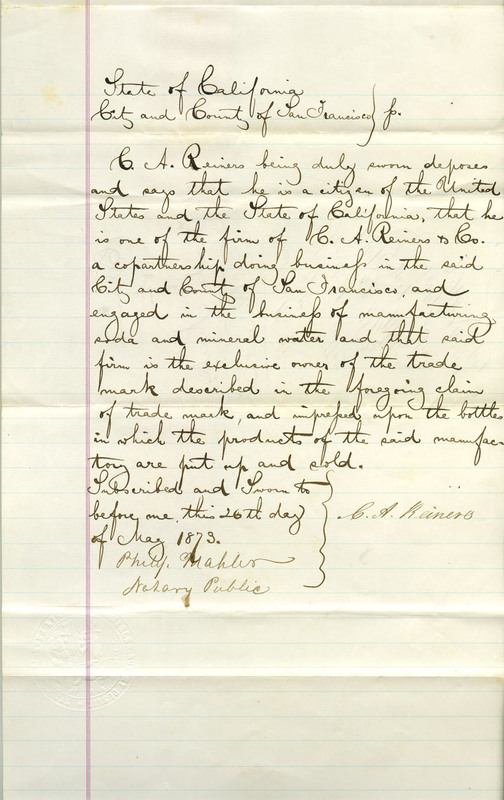 State of California
City and County of San Francisco } ss.
C. A. Reiners being duly sworn deposes
and says that he is a citizen of the United
States and the State of California, that he
is one of the firm of C. A. Reiners & Co.
a copartnership doing business in the said
City and County of San Francisco, and
engaged in the business of manufacturing
soda and mineral water and that said
firm is the exclusive owner of the trade
mark described in the foregoing claim
of trade mark, and impressed upon the bottles
in which the products of the said manufac
tory are put up and sold.
Subscribed and Sworn to
before me, this 26th day
of May 1873.
C. A. Reiners
Philip. Mahler
Notary Public